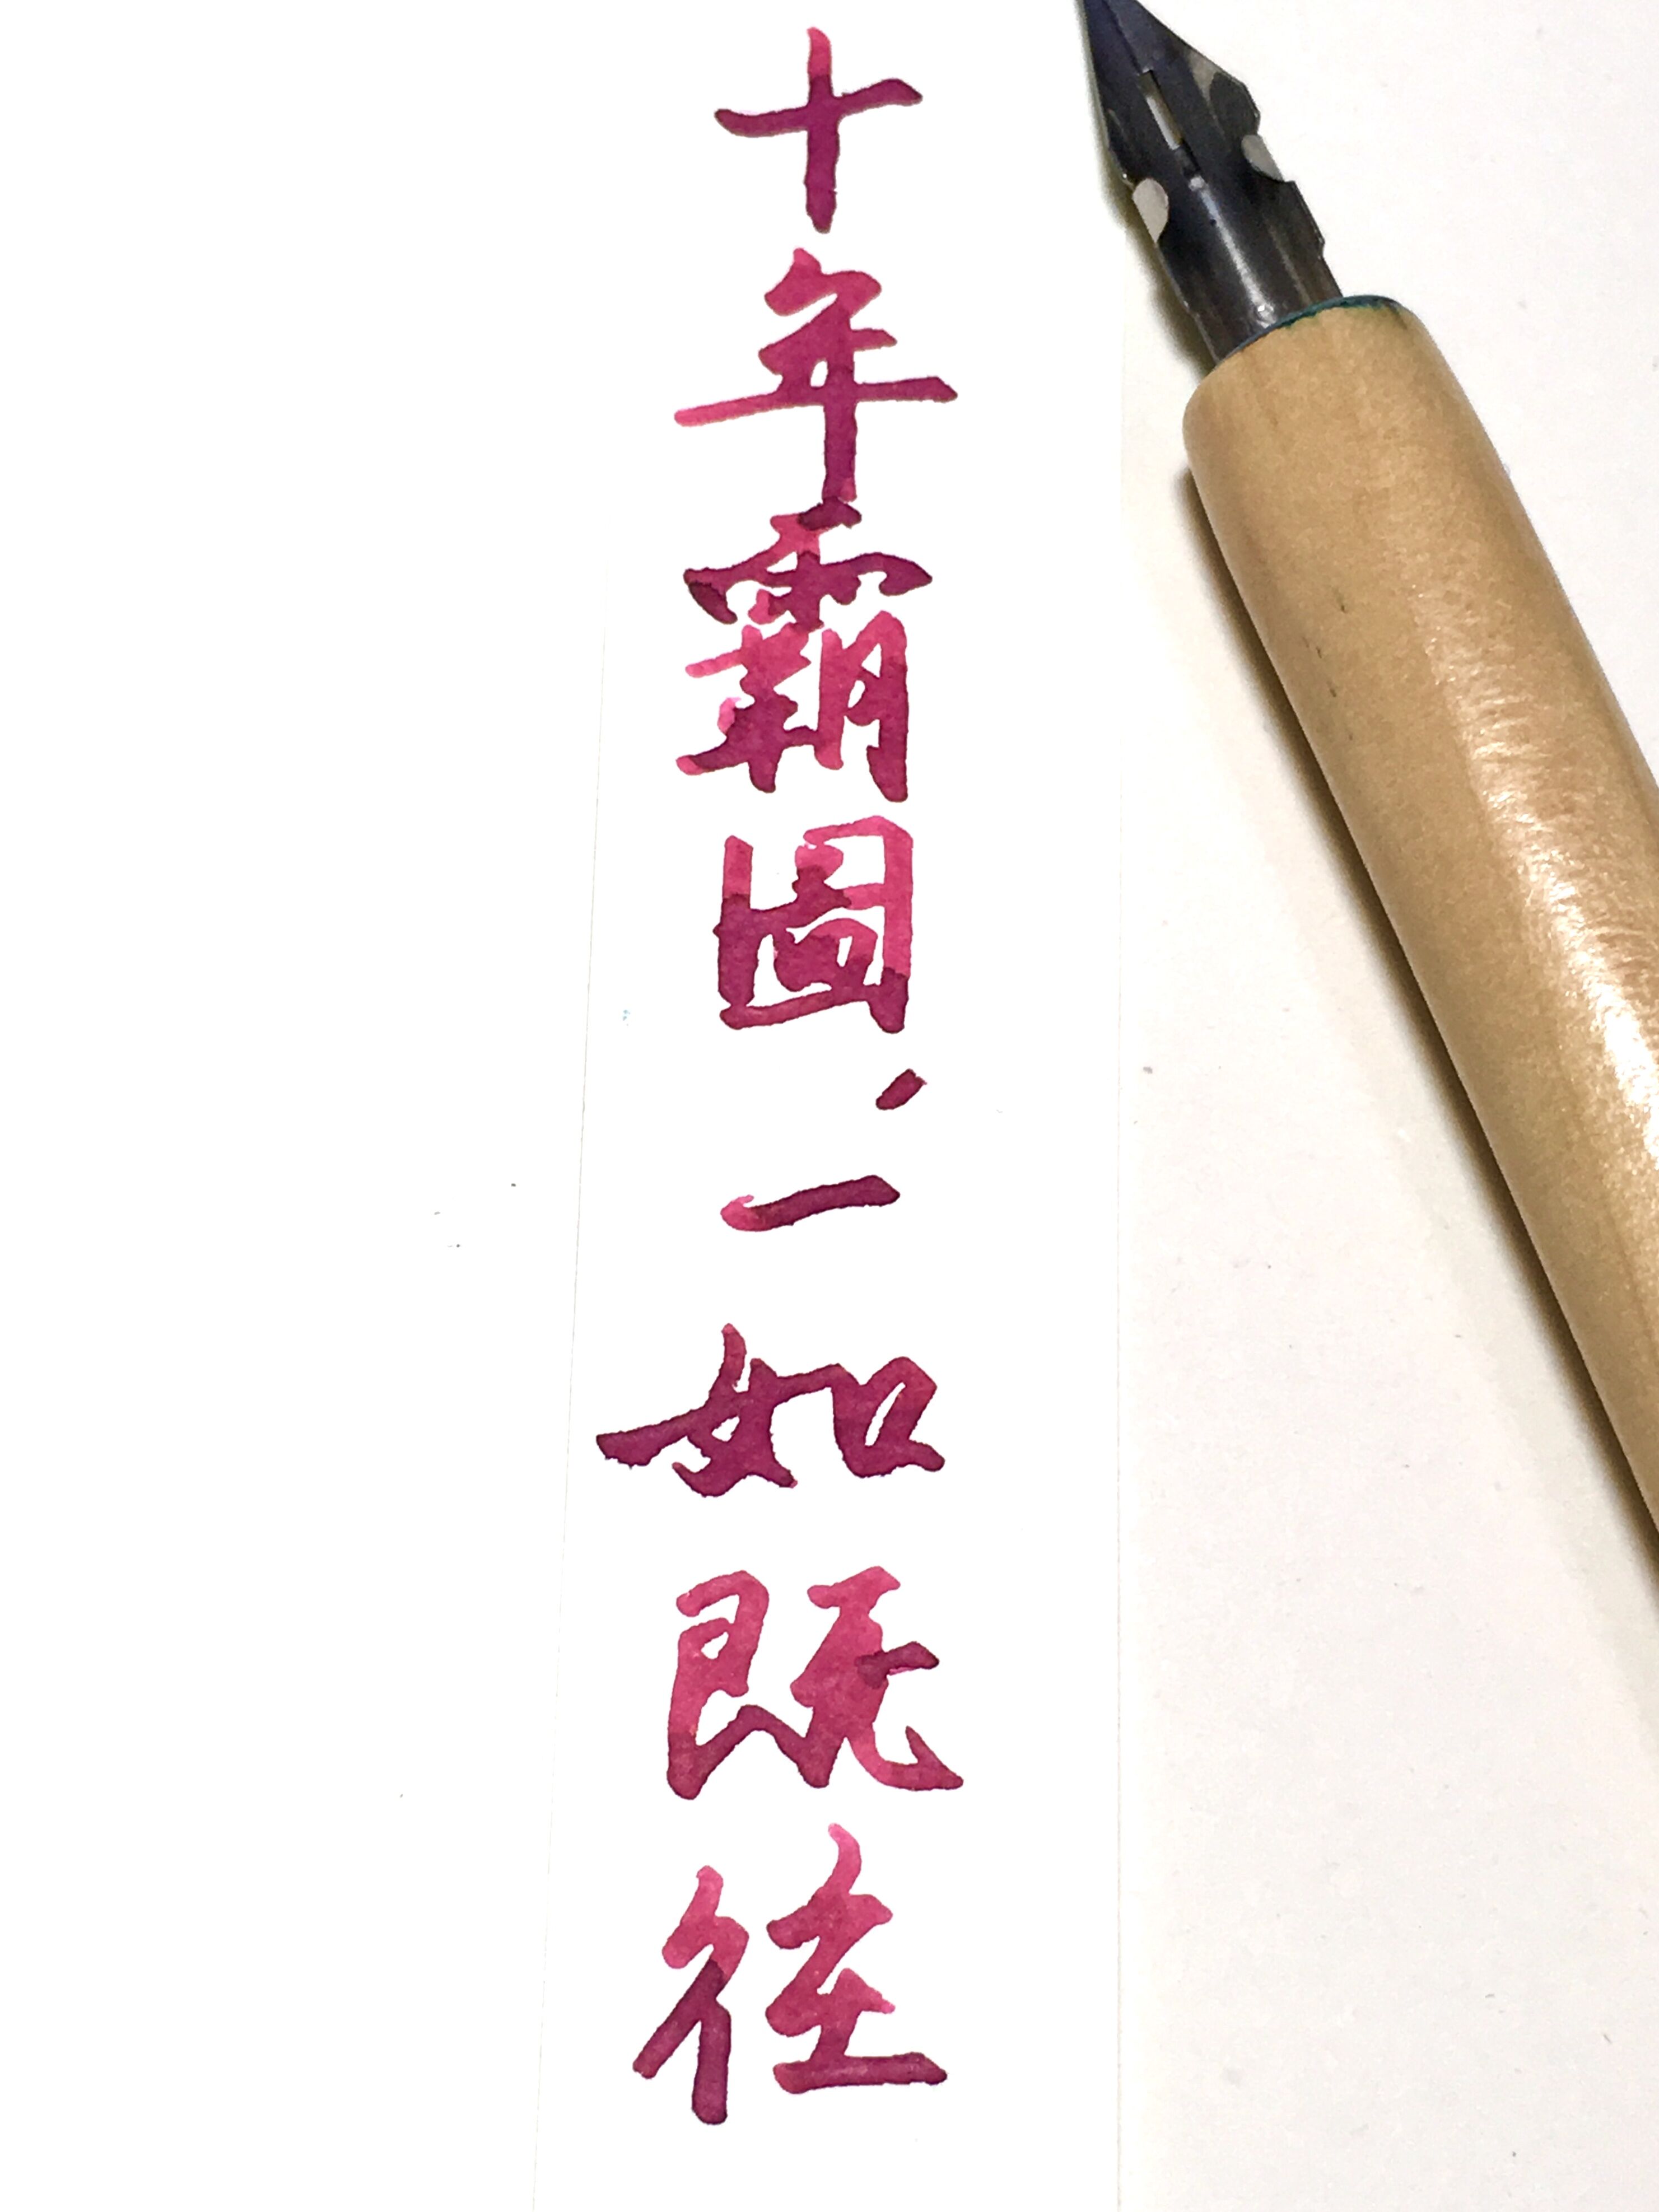 十年霸圖，一如既往